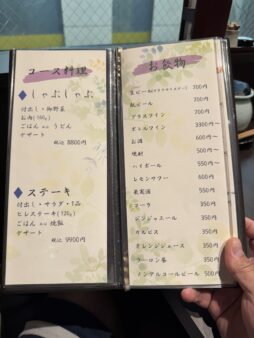 コース料理
しゃぶしゃぶ
付出し・御野菜
お肉(160g)
ごはん or うどん
デザート
税込 8800円
ステーキ
付出し・サラダ・1品
ヒレステーキ(120g)
ごはん or
デザート
税込 9900円
お飲物
生ビール 700円
瓶ビール 700円
グラスワイン 700円
ボトルワイン 3300円〜
お酒 600円〜
焼酎 500円〜
ハイボール 550円〜
レモンサワー 600円
果実酒 550円
コーラ 350円
ジンジャエール 350円
カルピス 350円
オレンジジュース 350円
ウーロン茶 350円
ノンアルコールビール 500円